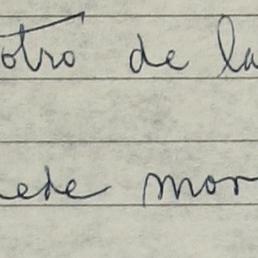 otro de la
uede mor